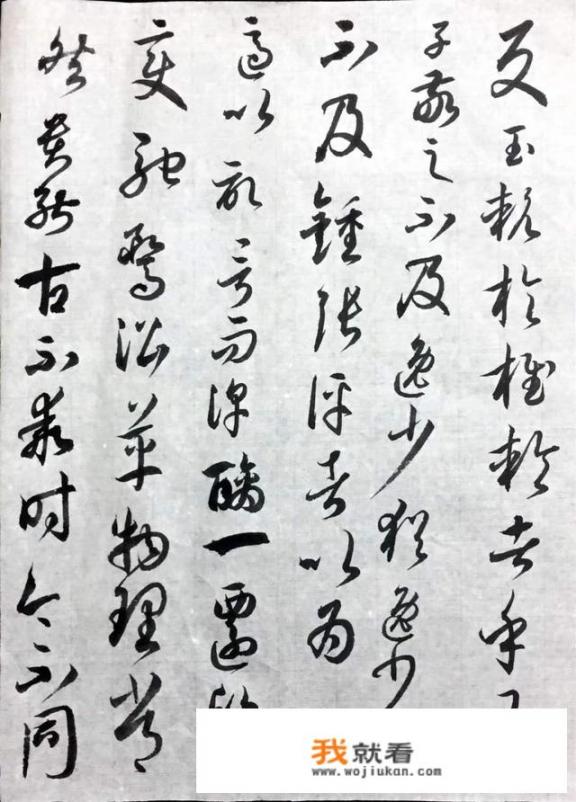 反玉輅於椎輪者乎
子敬之不及逸少猶逸少
不及鍾張評者以為
適以記言而淳醨一遷
變馳騖沿革物理常
然貴能古不乖時今不同
我就看
www.wojiukan.com